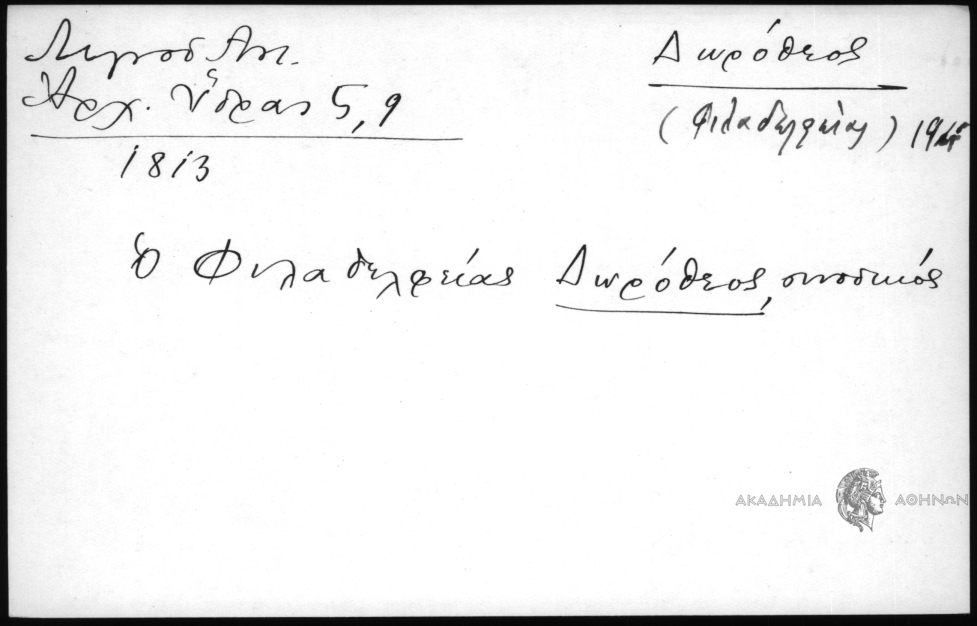 Λιγνοῦ Ἀντ.
Ἀρχ. Ὕδρας 5, 9
1813
Δωρόθεος
(Φιλαδελφείας)
Ὁ Φιλαδελφείας Δωρόθεος, συνοδικός
ΑΚΑΔΗΜΙΑ ΑΘΗΝΩΝ